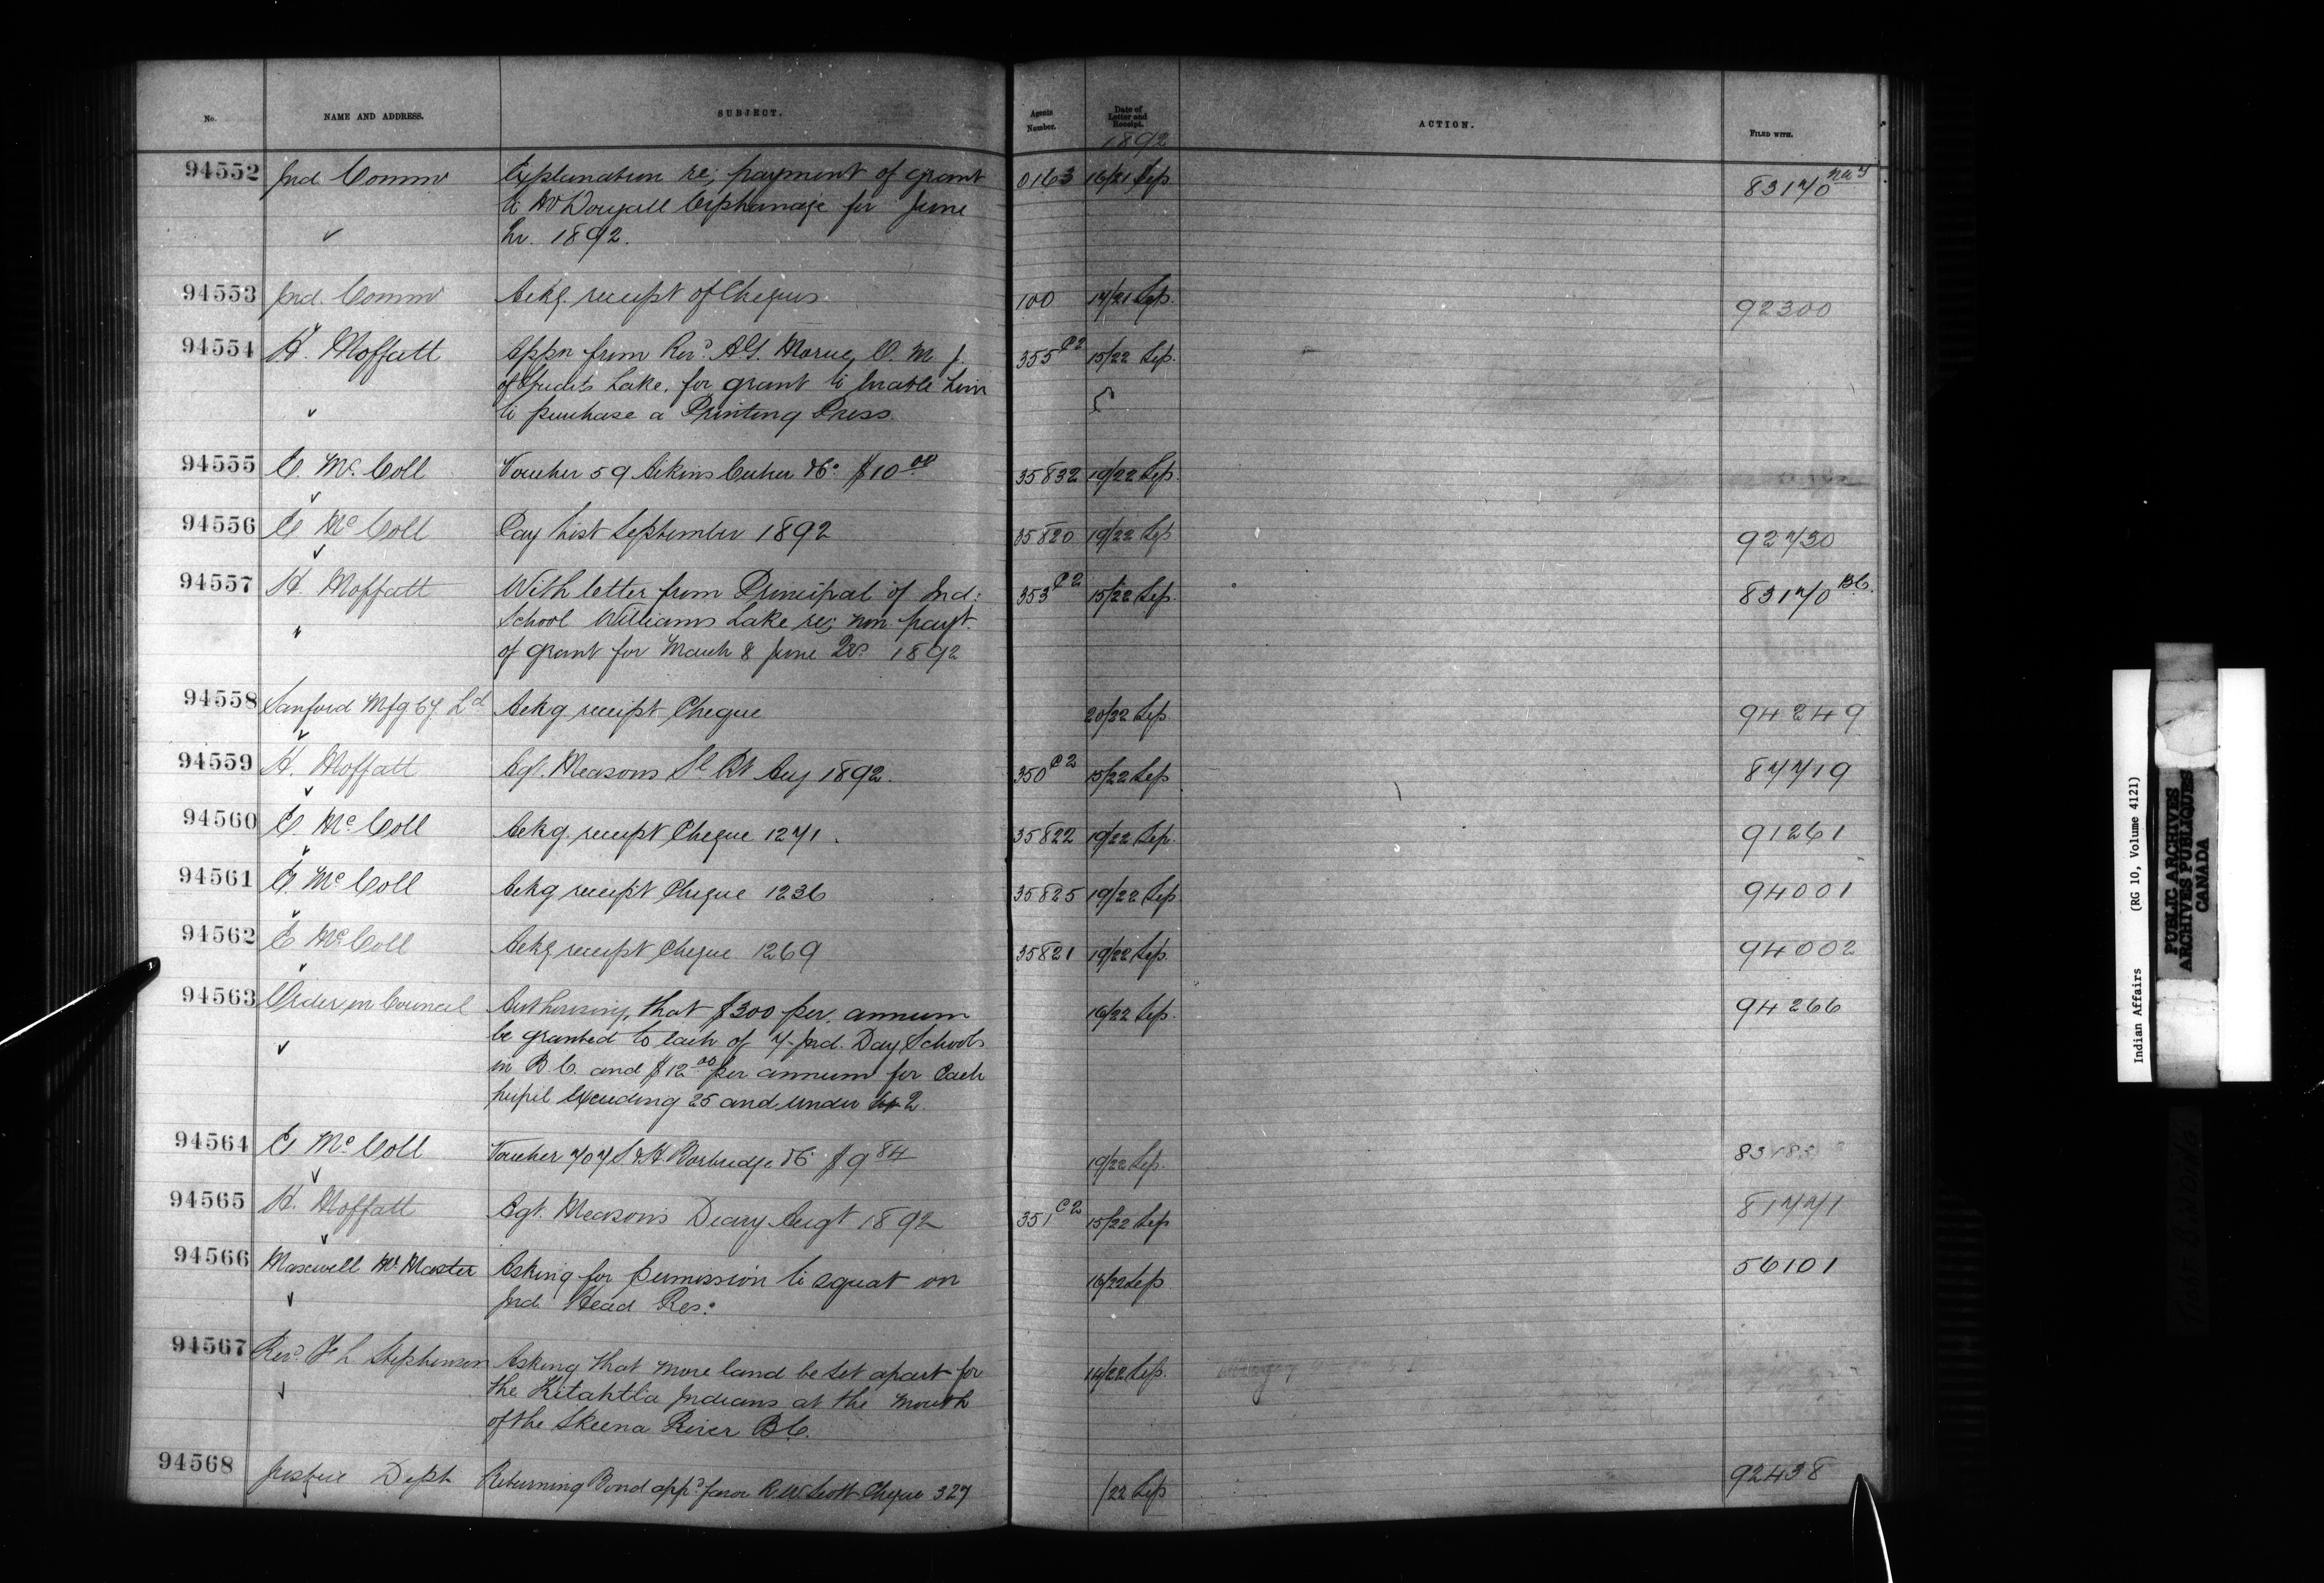 No. NAME AND ADDRESS. SUBJECT. Agents Number. Date of Letter and Receipt. ACTION. FILED WITH.
1892
94552 Ind. Commr Explanation re; payment of grant 0163 16/21 Sep 83170
to McDougall Orphanage for June
Qr. 1892.
94553 Ind. Commr Ackg. receipt of Cheques 100 17/21 Sep. 92300
94554 H. Moffatt Appn from Revd. A.G. Morice, O. M. J. 355 C2 15/22 Sep.
of Stuarts Lake, for grant to enable him
to purchase a Printing Press.
94555 E. Mc. Coll Voucher 59 Aikins Culver &Co. $10 00 35832 19/22 Sep.
94556 E Mc Coll Pay List September 1892 35820 19/22 Sep 92730
94557 H. Moffatt With letter from Principal of Ind: 353 C2 15/22 Sep. 83170 B.C.
" School Williams Lake re; non payt.
of grant for March & June Qrs. 1892
94558 Sanford Mfg Cy Ld Ackg receipt Cheque 20/22 Sep 94249
94559 H. Moffatt Agt. Measons Sl Rt Aug 1892. 350 C2 15/22 Sep 87719
94560 E. Mc Coll Ackg. receipt Cheque 1271. 35822 19/22 Sep. 91261
94561 E. Mc Coll Ackg receipt Cheque 1236 35825 19/22 Sep 94001
94562 E Mc. Coll Ackg receipt Cheque 1269 35821 19/22 Sep. 94002
94563 Order in Council Authorising, that $300 per. annum 16/22 Sep. 94266
be granted to each of 7. Ind. Day Schools
in B.C. and $12 00 per annum for Each
pupil exceeding 25 and under 42.
94564 E Mc Coll Voucher 707 S & H. Borbridge &Co $9 84 19/22 Sep. 83183
94565 H. Moffatt Agt. Measons Diary Augt 1892 351 C2 15/22 Sep 81771
94566 Maxwell Mc Master Asking for permission to squat on 16/22 Sep 56101
Ind. Head Res:
94567 Revd. F L Stephenson Asking that more land be set apart for 14/22 Sep.
the Kitahtla Indians at the mouth
of the Skeena River B.C.
94568 Justice Dept Returning Bond appd. favor R.W. Scott Cheque 327 /22 Sep 92438
Indian Affairs (RG 10, Volume 4121)
PUBLIC ARCHIVES
ARCHIVES PUBLIQUES
CANADA